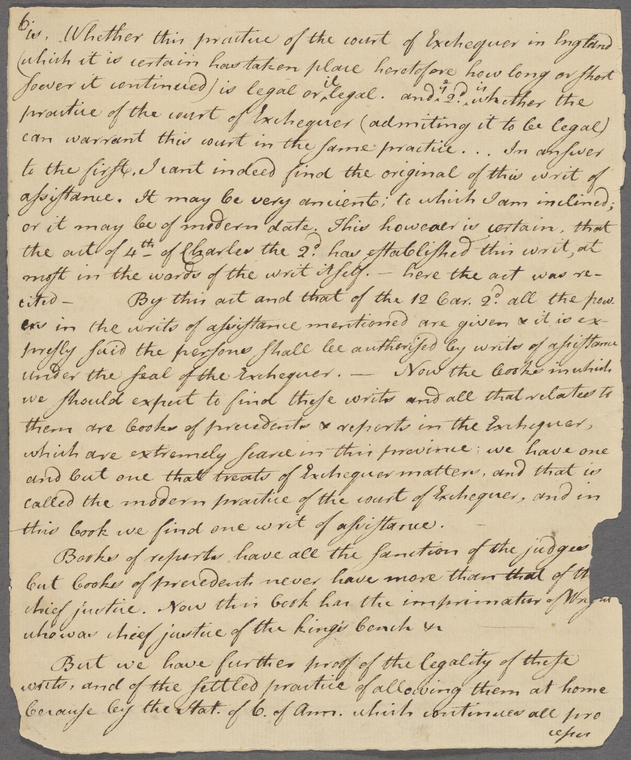 6.
is. Whether this practice of the court of Exchequer in England
(which it is certain has taken place heretofore how long or short
soever it continued) is legal or illegal. and 2.d is whether the
practice of the court of Exchequer (admiting it to be legal)
can warrant this court in the same practice... In answer
to the first, I cant indeed find the original of this writ of
assistance. It may be very ancient; to which I am inclined;
or it may be of modern date. This however is certain, that
the act of 4th of Charles the 2d has established this writ, at
most in the words of the writ itself. — here the act was re-
cited — By this act and that of the 12 Car. 2d all the pow
ers in the writs of assistance mentioned are given & it is ex-
pressly said the persons shall be authorised by writs of assistance
under the seal of the Exchequer. — Now the books in which
we should expect to find these writs and all that relates to
them are books of precedents & reports in the Exchequer,
which are extremely scarce in this province; we have one
and but one that treats of Exchequer matters, and that is
called the modern practice of the court of Exchequer, and in
this book we find one writ of assistance.
Books of reports have all the sanction of the judges
but books of precedents never have more than that of th
chief justice. Now this book has the imprimatur of Wright
who was chief justice of the king's bench &c
But we have further proof of the legality of these
writs, and of the settled practice of allowing them at home
because by the Stat. of 6. of Ann. which continues all pro
cesses